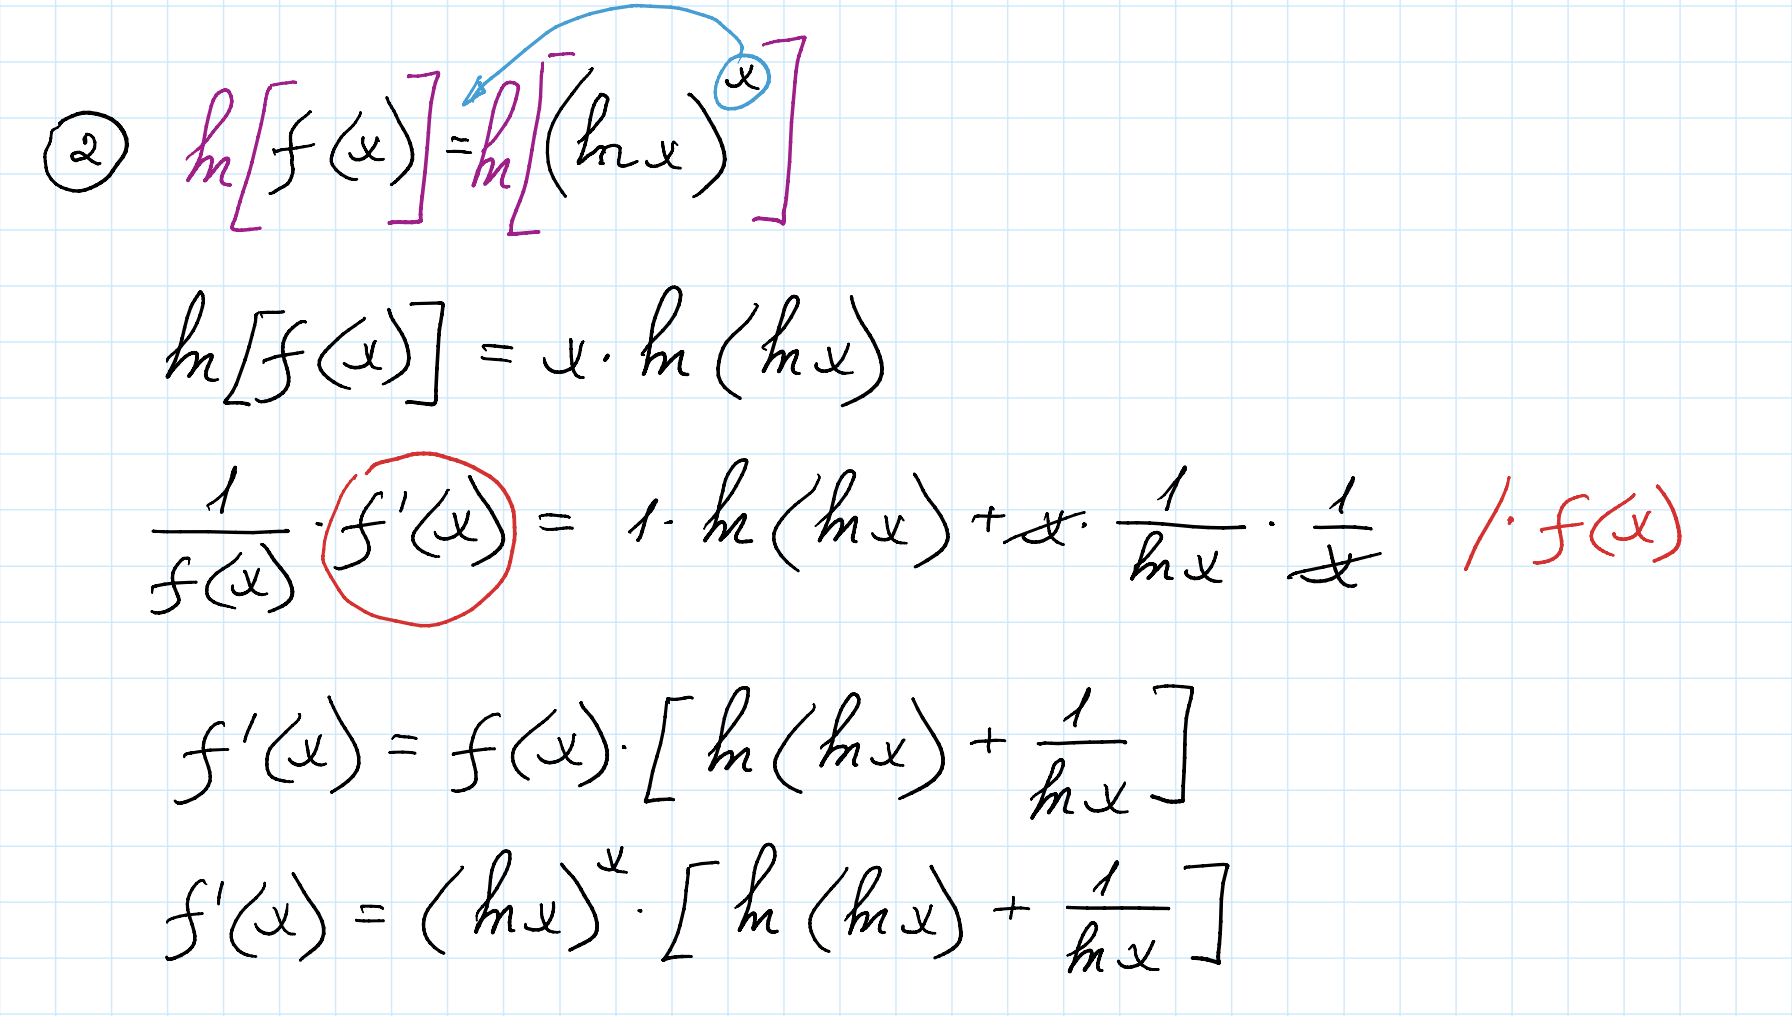 ② ln[f(x)] = ln[(ln x)^x]
ln[f(x)] = x · ln(ln x)
1/f(x) · f'(x) = 1 · ln(ln x) + x · 1/ln x · 1/x / · f(x)
f'(x) = f(x) · [ln(ln x) + 1/ln x]
f'(x) = (ln x)^x · [ln(ln x) + 1/ln x]